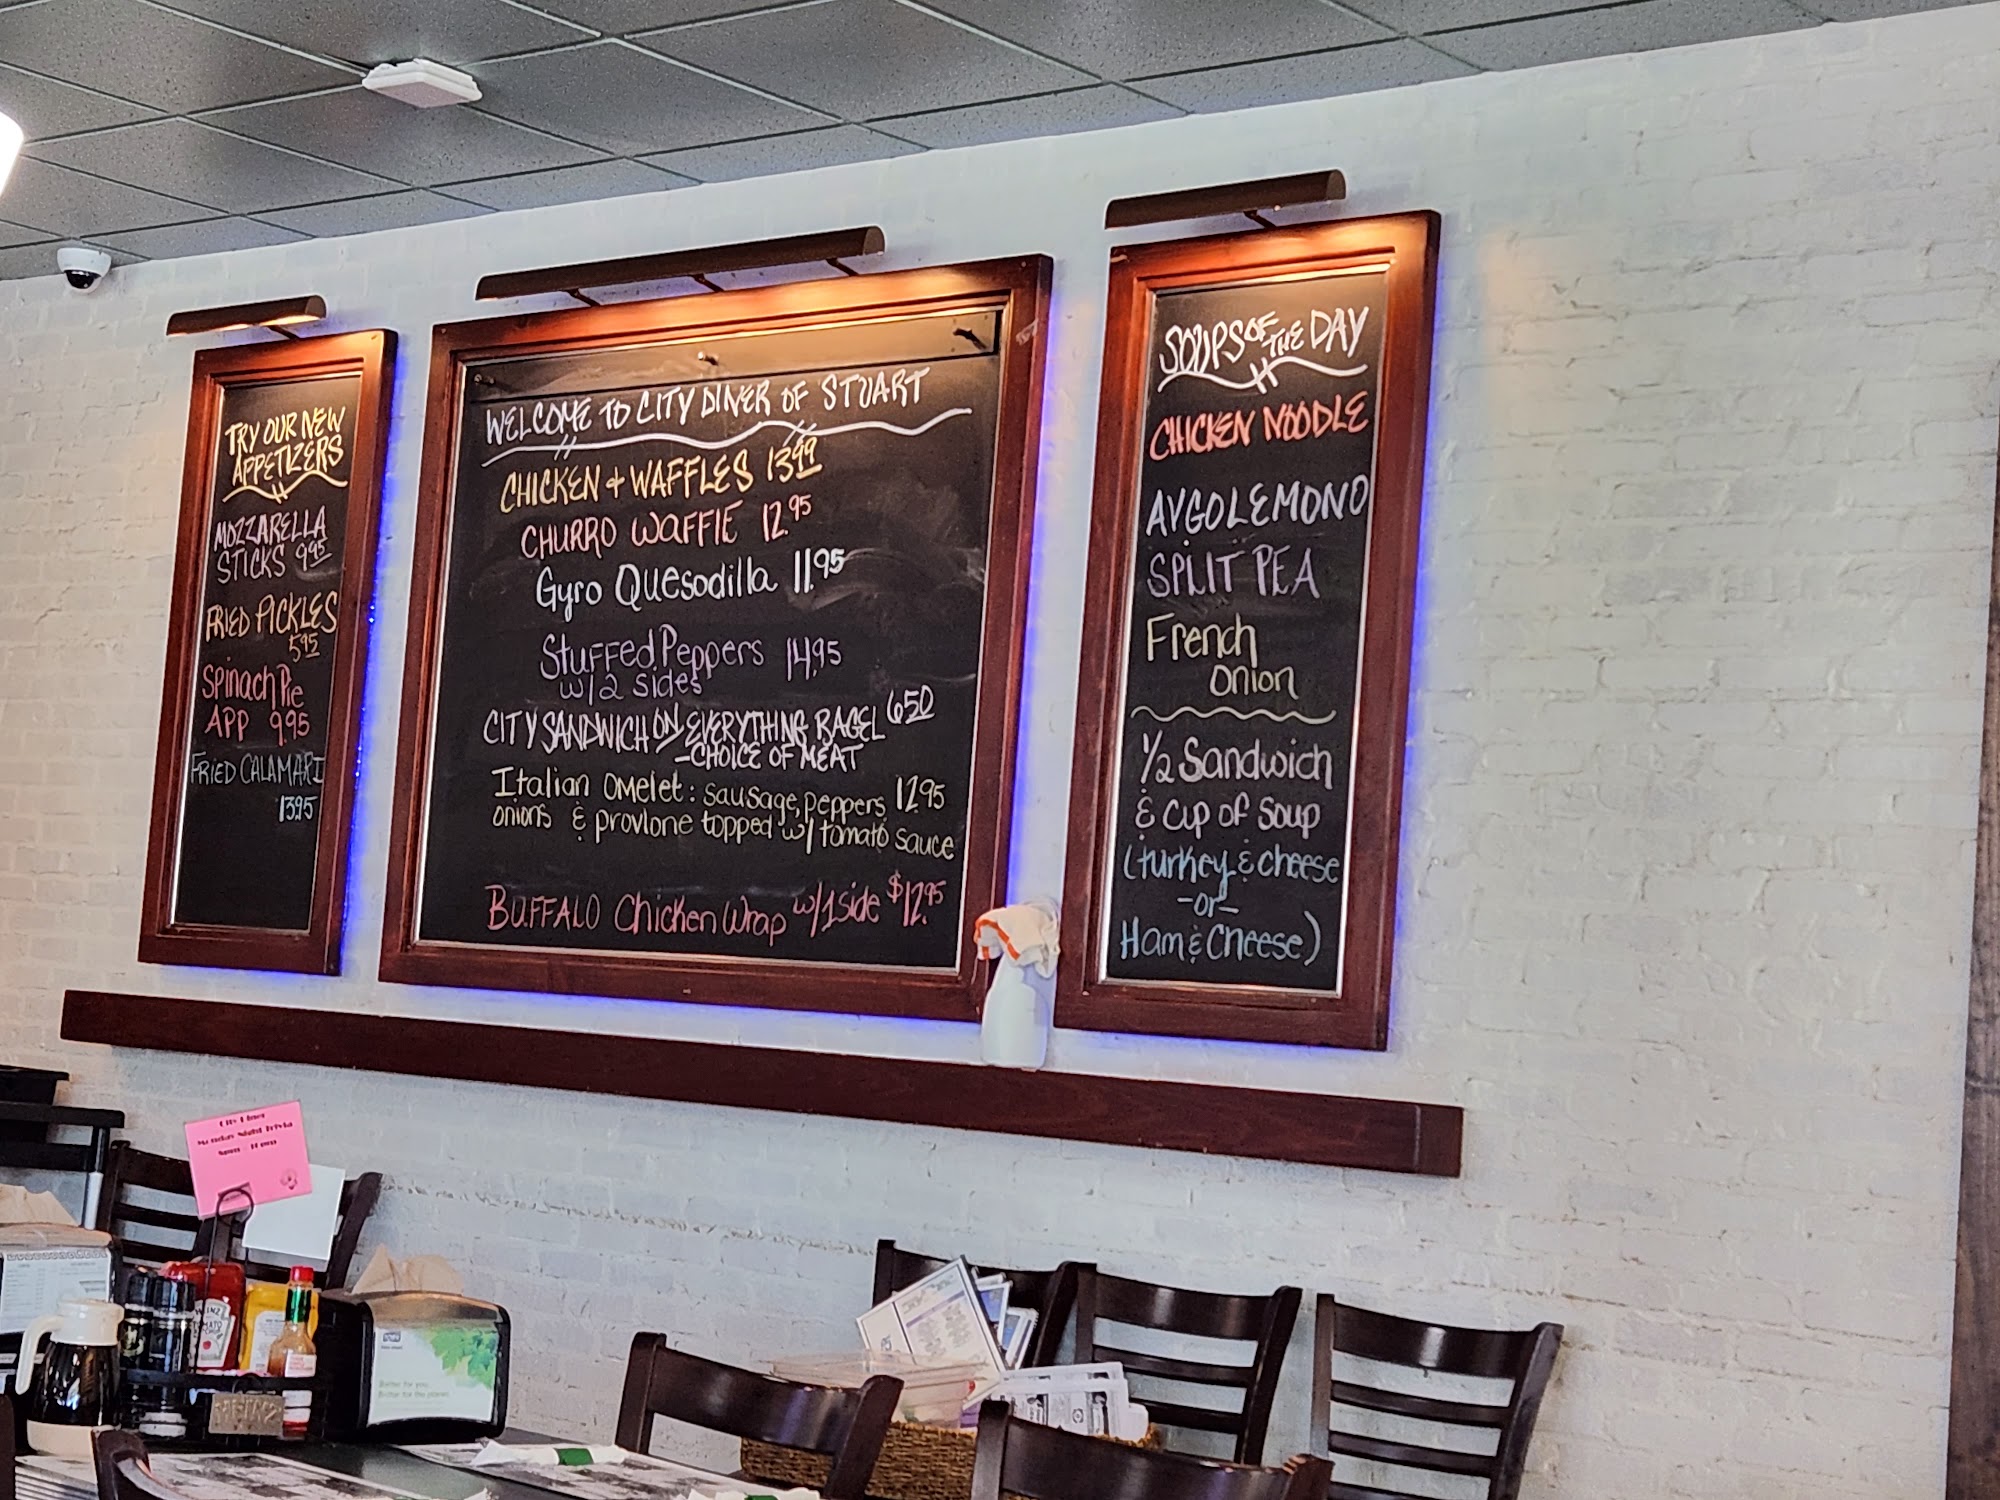 TRY OUR NEW
APPETIZERS
MOZZARELLA
STICKS 9.95
FRIED PICKLES
5.95
Spinach Pie
APP 9.95
FRIED CALAMARI
13.95
WELCOME TO CITY DINER OF STUART
CHICKEN + WAFFLES 13.99
CHURRO WAFFIE 12.95
Gyro Quesodilla 11.95
Stuffed Peppers 14.95
w/2 sides
CITY SANDWICH ON EVERYTHING BAGEL 6.50
-CHOICE OF MEAT
Italian Omelet: sausage, peppers, 12.95
onions & provlone topped w/ tomato sauce
BUFFALO Chicken Wrap w/1 side $12.95
SOUPS OF THE DAY
CHICKEN NOODLE
AVGOLEMONO
SPLIT PEA
French
Onion
1/2 Sandwich
& cup of soup
(turkey & cheese
-or-
Ham & Cheese)
City Diner
Monday Night Trivia
HEINZ
TOMATO
Better for you.
Better for the planet.